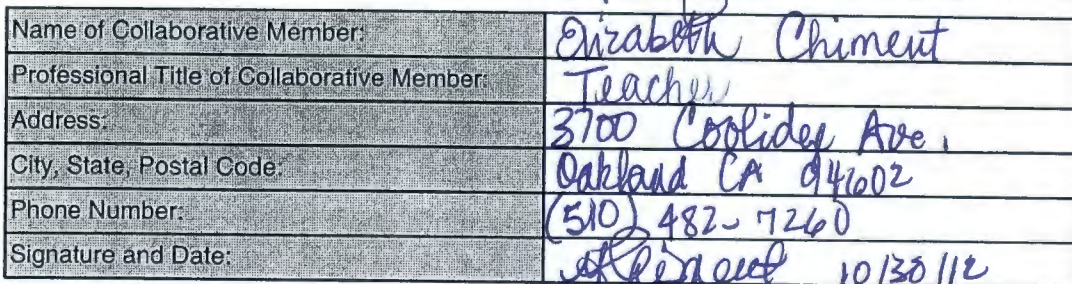 Name of Collaborative Member: Elizabeth Chiment
Professional Title of Collaborative Member: Teacher
Address: 3700 Coolidge Ave.
City, State, Postal Code: Oakland CA 94602
Phone Number: (510) 482-7260
Signature and Date: 10/30/12